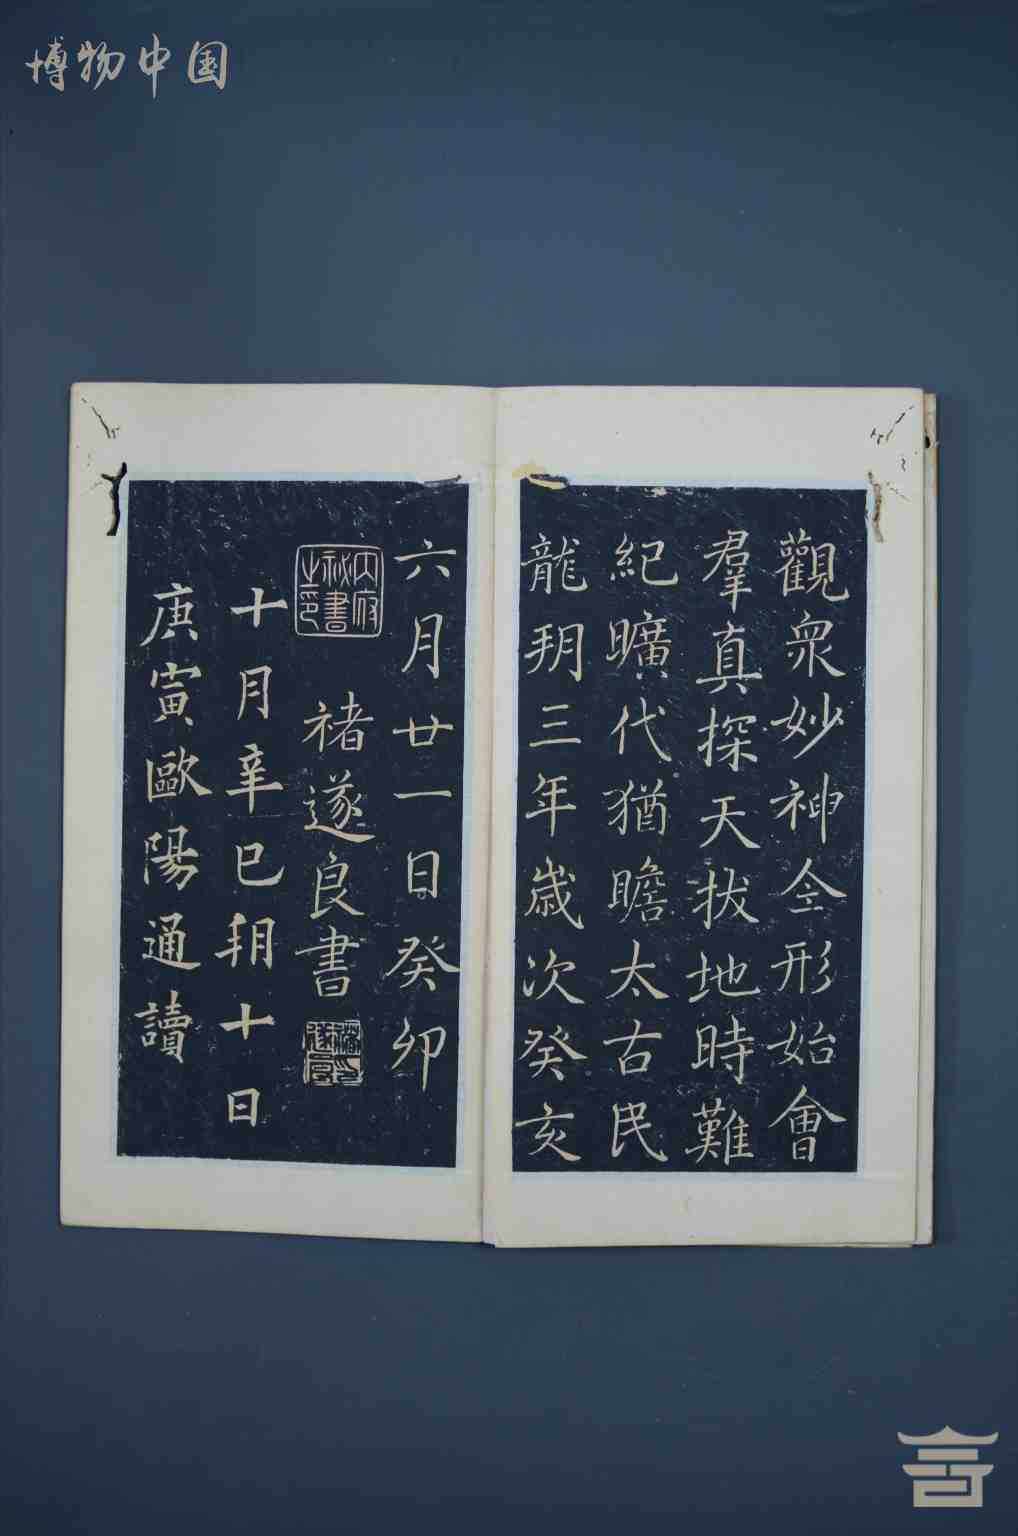 博物中国
觀衆妙神仝形始會
羣真探天拔地時難
紀曠代猶瞻太古民
龍玥三年歲次癸亥
六月廿一日癸卯
内府祕書之印
褚遂良書
十月辛巳玥十日
庚寅歐陽通讀